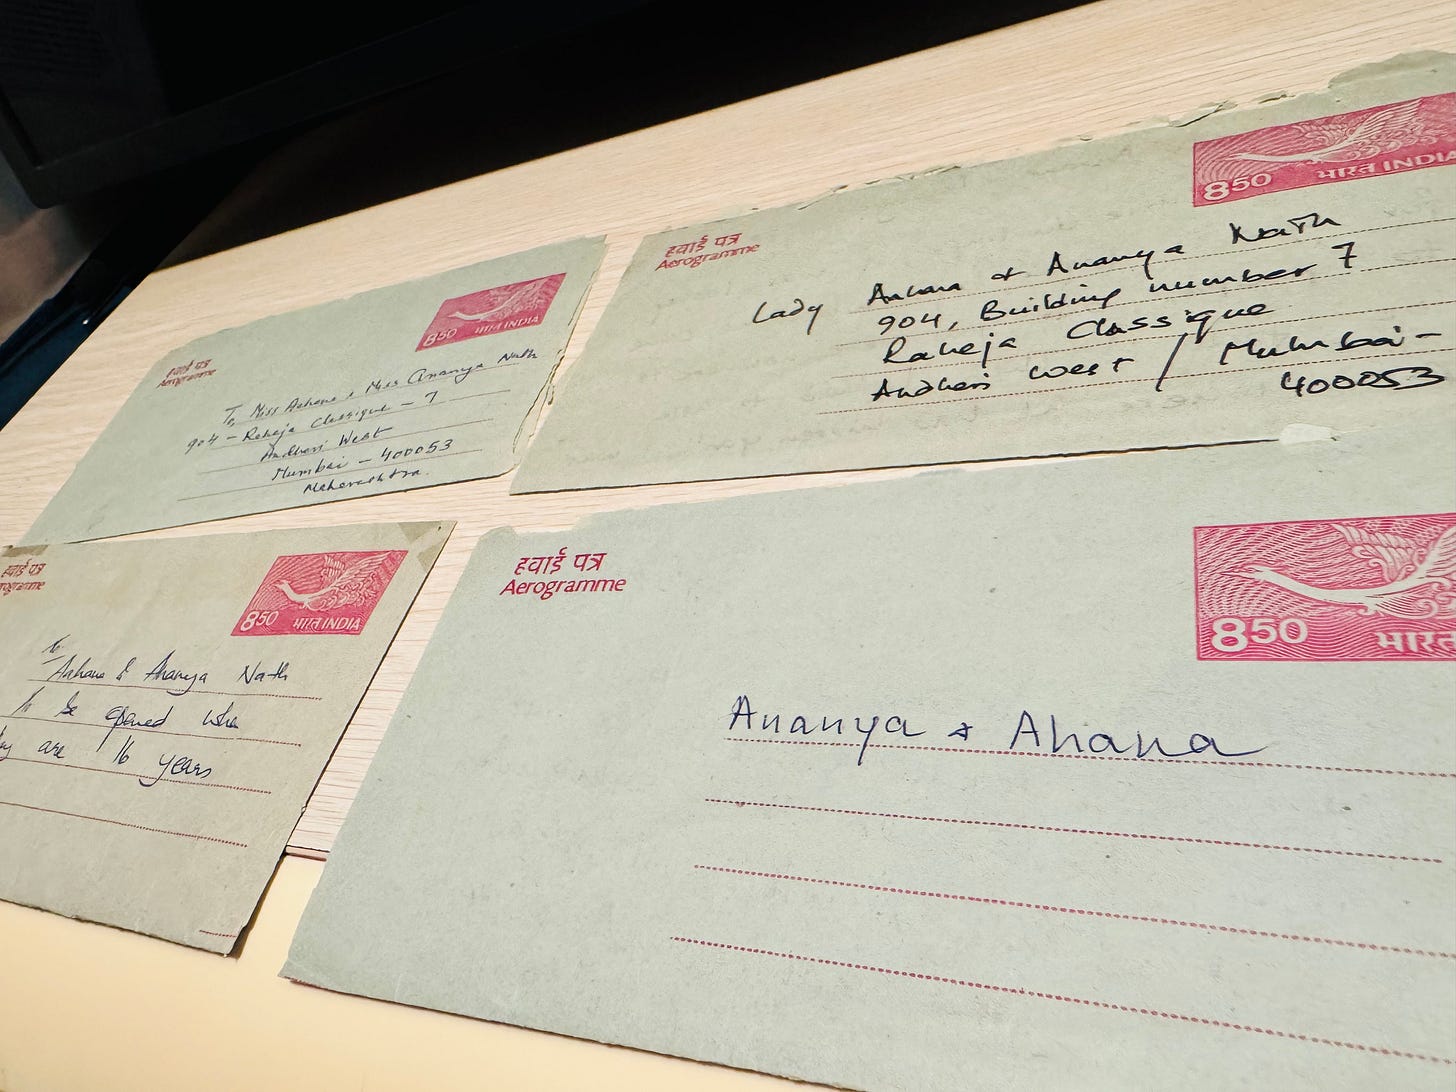 हवाई पत्र
Aerogramme
850 भारत INDIA
To, Miss Aahana & Miss Ananya Nath
904 – Raheja Classique – 7
Andheri West
Mumbai – 400053
Maharashtra.
हवाई पत्र
Aerogramme
850 भारत INDIA
Lady Aahana & Ananya Nath
904, Building number 7
Raheja Classique
Andheri West / Mumbai –
400053
हवाई पत्र
850 भारत INDIA
To
Aahana & Ananya Nath
To be opened when
are 16 years
हवाई पत्र
Aerogramme
850 भारत
Ananya & Ahana